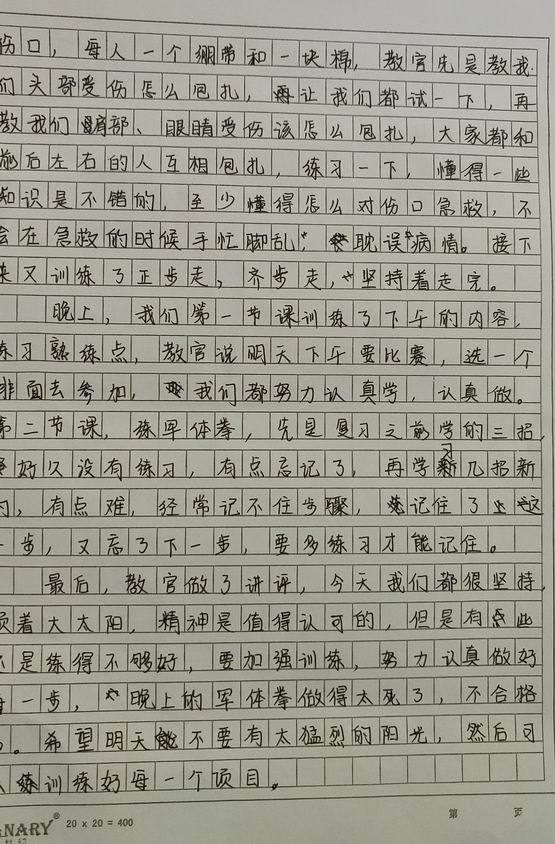 伤口，每人一个绷带和一块棉，教官先是教我
们头部受伤怎么包扎，让我们都试一下，再
教我们肩部、眼睛受伤该怎么包扎，大家都和
前后左右的人互相包扎，练习一下，懂得一些
知识是不错的，至少懂得怎么对伤口急救，不
会在急救的时候手忙脚乱，耽误病情。接下
来又训练了正步走，齐步走，坚持着走完。
晚上，我们第一节课训练了下午的内容，
练习熟练点，教官说明天下午要比赛，选一个
排面去参加，我们都努力认真学，认真做。
第二节课，练军体拳，先是复习之前学的三招，
好久没有练习，有点忘记了，再学习几招新
的，有点难，经常记不住步骤，记住了上这
一步，又忘了下一步，要多练习才能记住。
最后，教官做了讲评，今天我们都很坚持，
顶着大太阳，精神是值得认可的，但是有些
还是练得不够好，要加强训练，努力认真做好
每一步，晚上的军体拳做得太死了，不合格
。希望明天不要有太猛烈的阳光，然后可
以训练好每一个项目。
NARY® 20 x 20 = 400 第 页